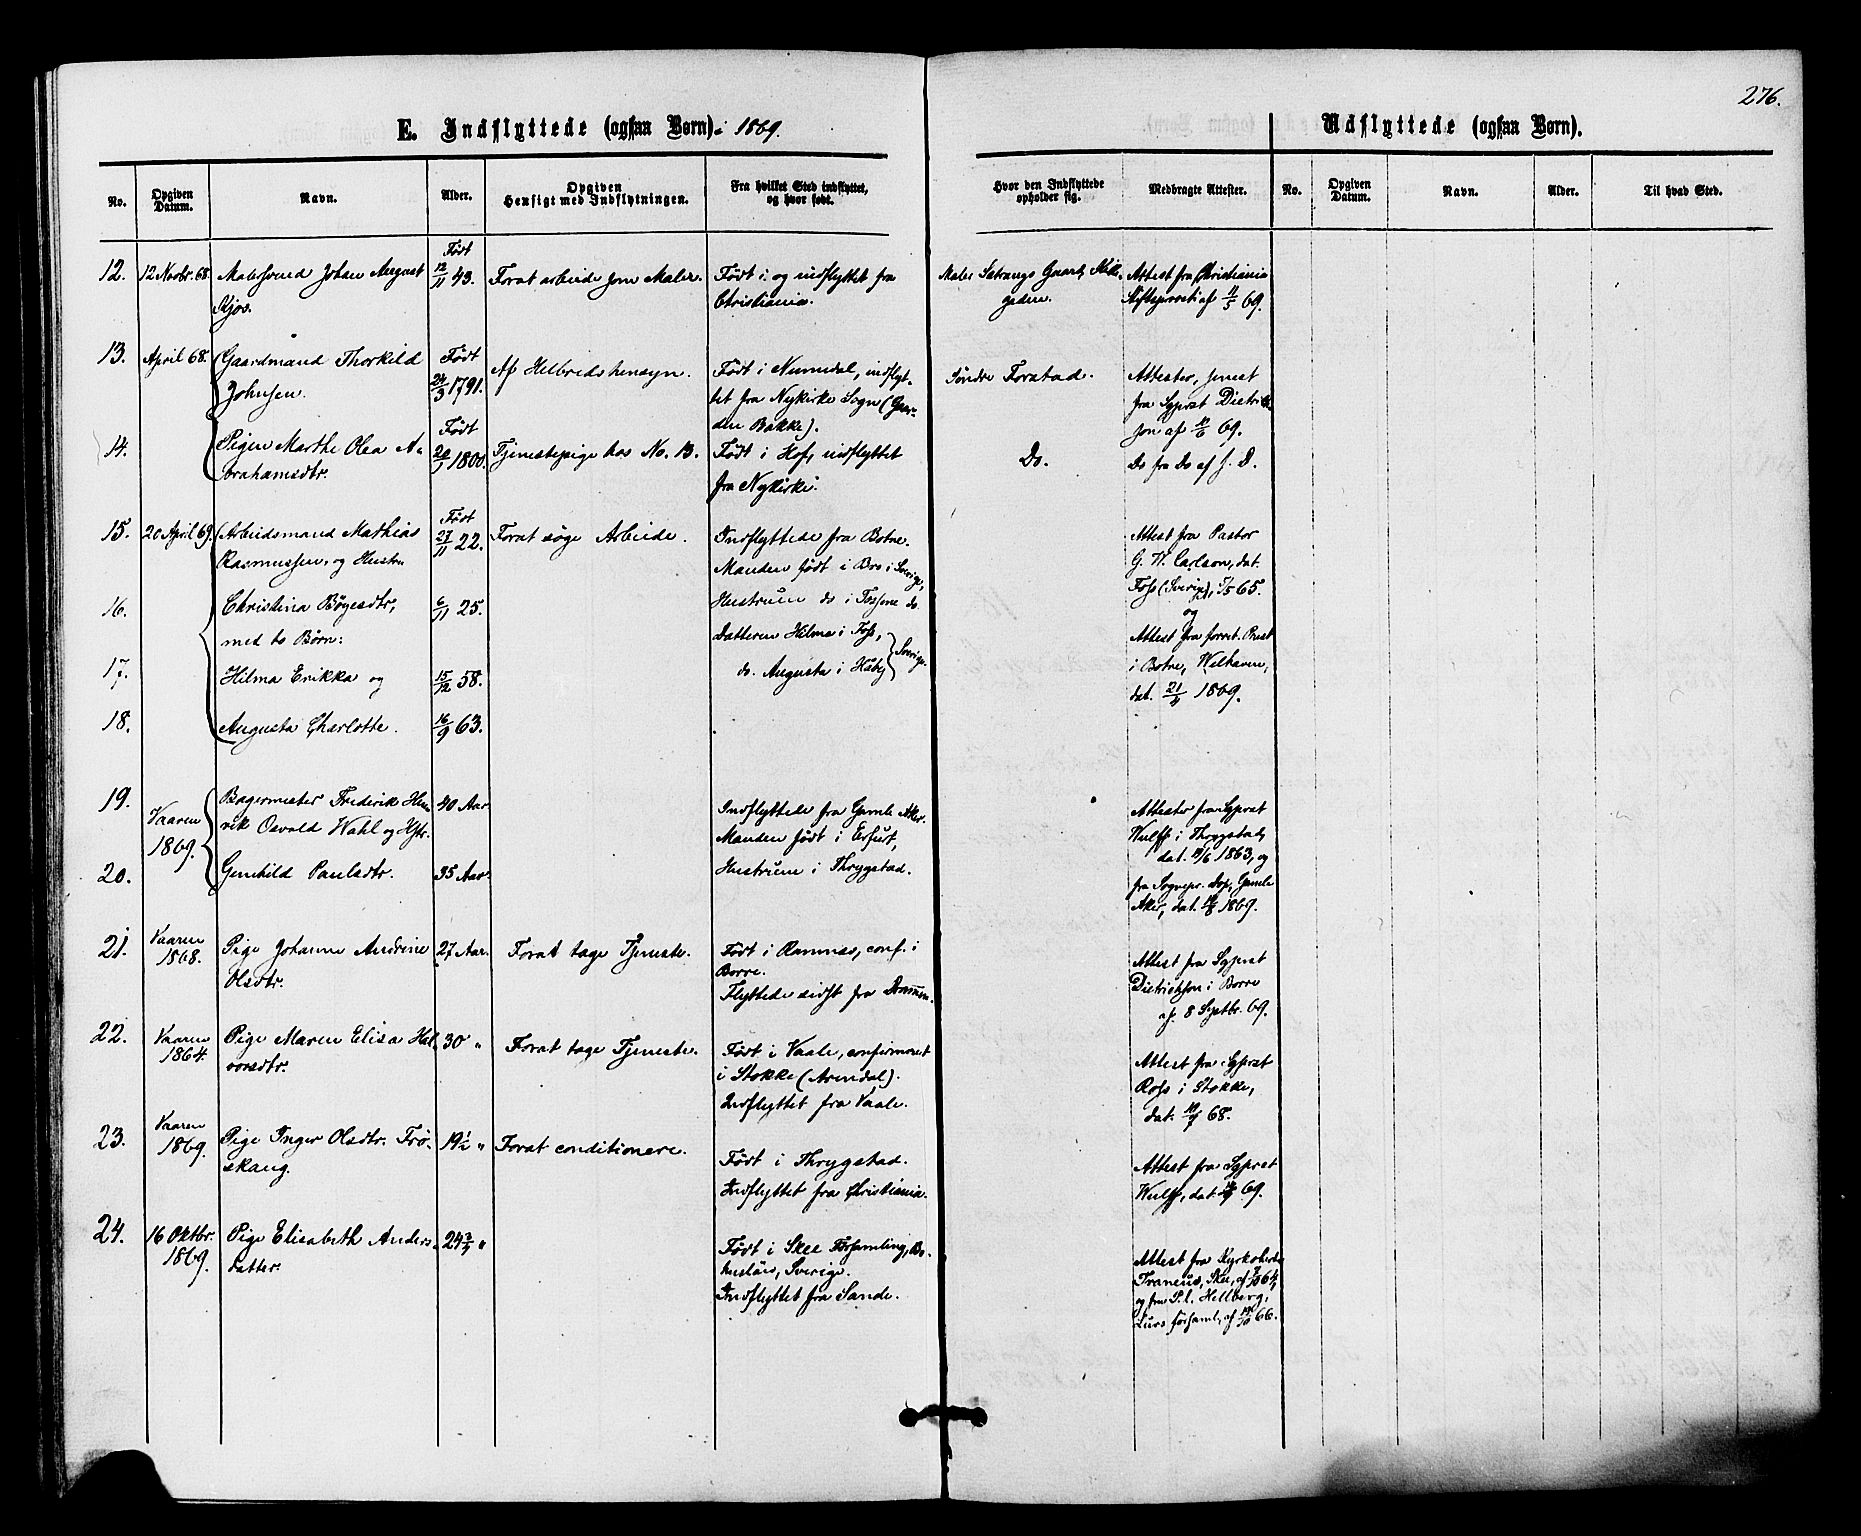 276.
E. Indflyttede (ogsaa Børn) i 1869.
Udflyttede (ogsaa Børn).
No.
Opgiven Datum.
Navn.
Alder.
Opgiven Hensigt med Indflytningen.
Fra hvilket Sted indflyttet, og hvor født.
Hvor den Indflyttede opholder sig.
Medbragte Attester.
No.
Opgiven Datum.
Navn.
Alder.
Til hvad Sted.
12.
12 Novbr. 68.
Malersvend Johan August
Kjos.
Født
12/11 43.
For at arbeide som Maler.
Født i og indflyttet fra
Christiania.
Maler Gaard,
gaden.
Attest fra Christiania
Stiftsprovsti af 11/5 69.
13.
April 68.
Gaardmand Thorkild
Johnsen.
Født
24/3 1791.
Af Helbredshensyn.
Født i Numedal, indflyt-
tet fra Nykirke Sogn (Gaar-
den Bakke).
Søndre Forstad.
Attester, senest
fra Sgprst Dietrich-
son af 69.
14.
Pigen Marthe Olea A-
brahamsdtr.
Født
20/1 1800.
Tjenestepige hos No. 13.
Født i Hof, indflyttet
fra Nykirke.
Do.
Do fra Do af s. D.
15.
20 April 69.
Arbeidsmand Mathias
Rasmussen, og Hustru
Født
27/11 22.
For at søge Arbeide.
Indflyttede fra Botne.
Manden født i Bro i Sverige,
Attest fra Pastor
G. W. Carlson, dat.
Foss (Sverige), 65.
og
16.
Christina Børjesdtr,
med to Børn:
6/11 25.
Hustruen do i Tossene do.
Datteren Hilma i Foss,
Attest fra forret. Præst
17.
Hilma Erikka og
15/12 58.
do. Augusta i Håby
Sverige.
i Botne, Welhaven,
dat. 21/4 1869.
18.
Augusta Charlotte.
16/9 63.
19.
Vaaren
1869.
Bagermester Frederik Hen-
rik Osvald Wahl og Hstr.
40 Aar
Indflyttede fra Gamle Aker.
Manden født i Erfurt,
Attester fra Sgprst
Wulff i Thrygstad,
dat. 1863, og
20.
Gunhild Paulsdtr.
35 Aar
Hustruen i Thrygstad.
fra Sognepr. Dop, Gamle
Aker, dat. 1869.
21.
Vaaren
1868.
Pige Johanne Andrine
Olsdtr.
27 Aar.
For at tage Tjeneste.
Født i Ramnæs, conf. i
Borre.
Flyttede sidst fra Drammen.
Attest fra Sgprst
Dietrichson i Borre
af 8 Septbr. 69.
22.
Vaaren
1864.
Pige Maren Elisa Hal-
vorsdtr.
30 "
For at tage Tjeneste.
Født i Vaale, confirmeret
i Stokke (Arendal).
Indflyttet fra Vaale.
Attest fra Sgprst
Ross i Stokke,
dat. 68.
23.
Vaaren
1869.
Pige Inger Olsdtr. Frø-
skaug.
19½ "
For at conditionere.
Født i Thrygstad.
Indflyttet fra Christiania.
Attest fra Sgprst
Wulff, dat. 69.
24.
16 Oktbr.
1869.
Pige Elisabeth Anders-
datter.
24¾ "
Født i Skee Församling, Bo-
huslän, Sverige.
Indflyttet fra Sande.
Attest fra Kyrkoherde
Traneus, Skee, af 64,
og fra P. l. Hellberg,
Lurs församl, af 66.